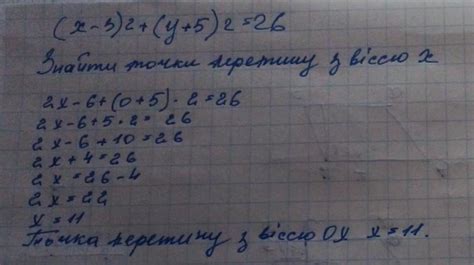 (x-3)2+(y+5)2=26
Знайти точки перетину з віссю x
2x-6+(0+5)·2=26
2x-6+5·2=26
2x-6+10=26
2x+4=26
2x=26-4
2x=22
x=11
Точка перетину з віссю OX x=11.